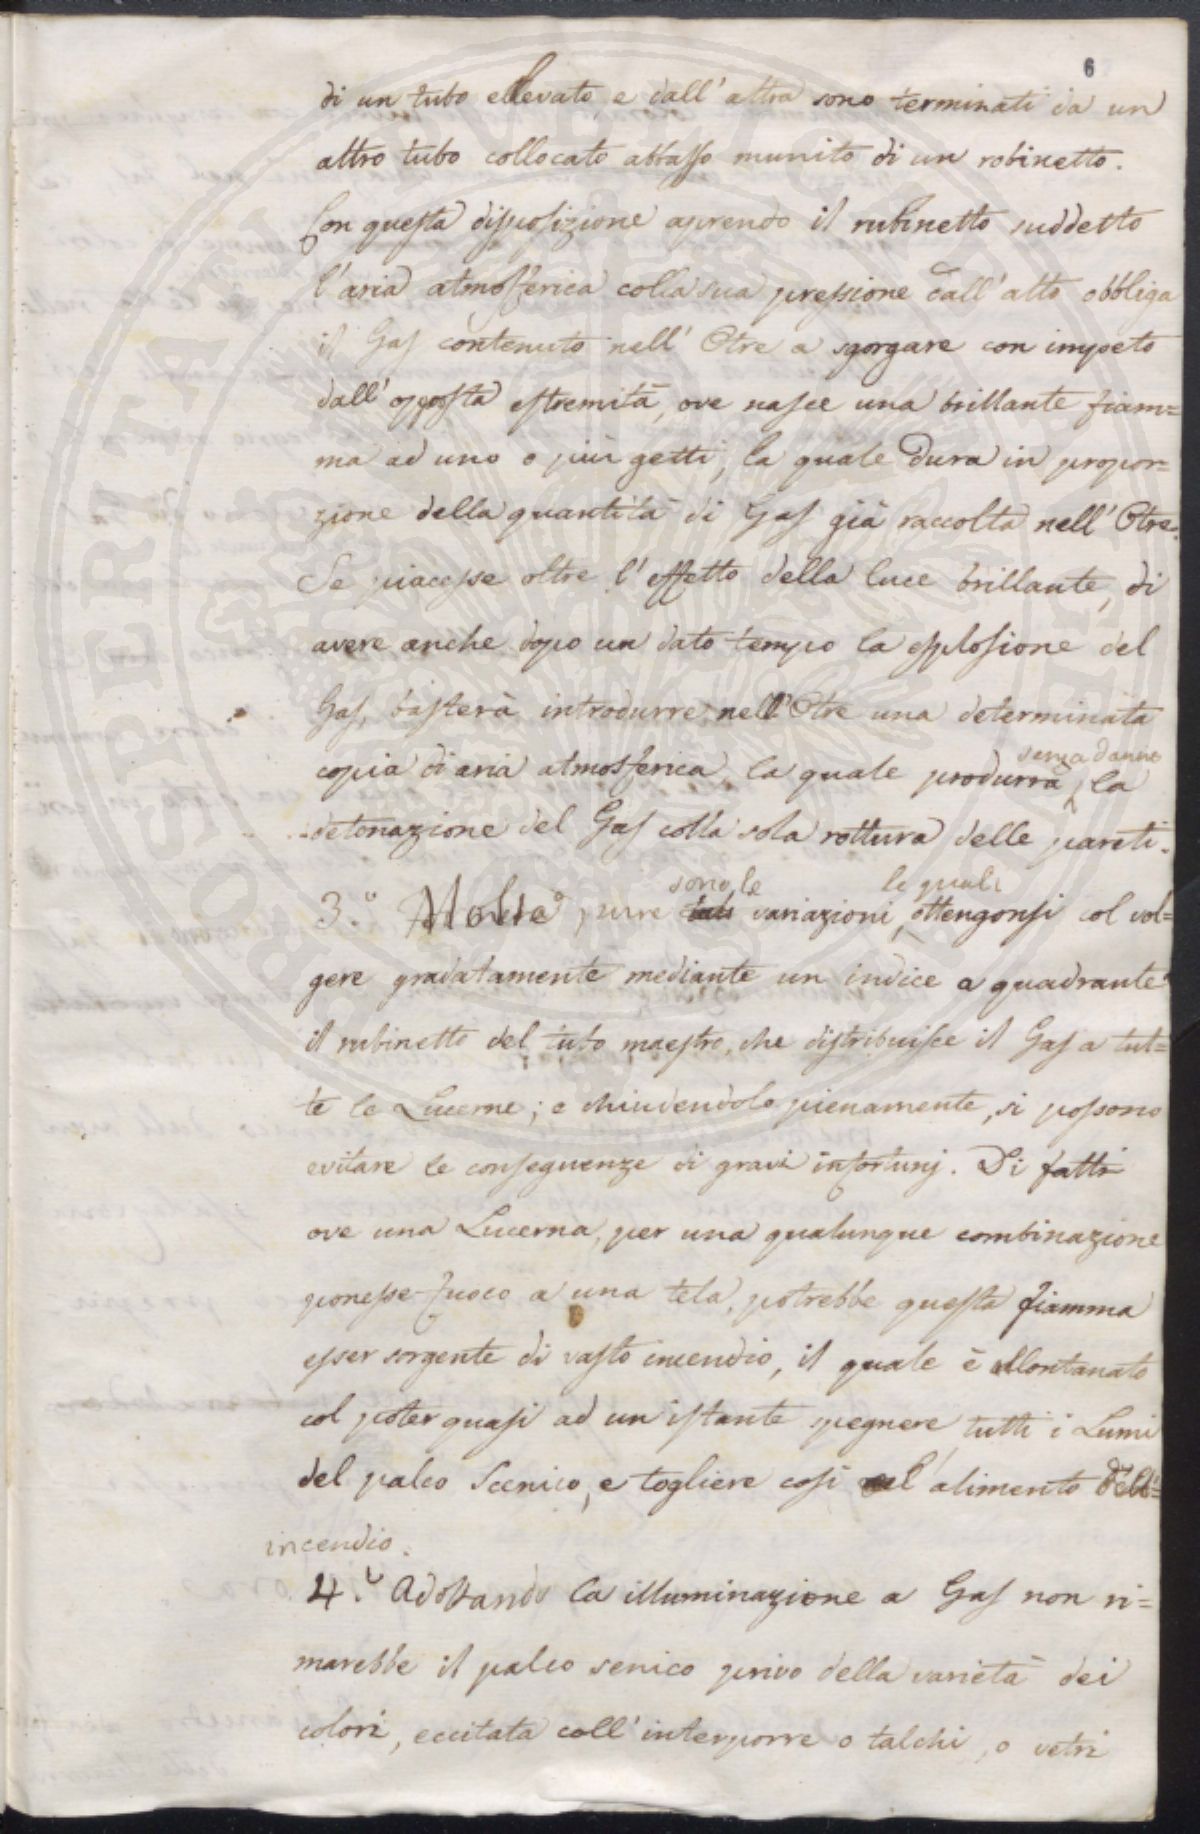 6
di un tubo ellevato, e dall'altra sono terminati da un
altro tubo collocato abbasso munito di un robinetto.
Con questa disposizione aprendo il rubinetto suddetto
l'aria atmosferica colla sua pressione dall'alto obbliga
il Gas contenuto nell'Otre a sgorgare con impeto
dall'opposta estremità, ove nasce una brillante fiam=
ma ad uno o più getti, la quale dura in propor=
zione della quantità di Gas già raccolta nell'Otre.
Se piacesse oltre l'effetto della luce brillante, di
avere anche dopo un dato tempo la esplosione del
Gas, basterà introdurre nell'Otre una determinata
senza danno
copia di aria atmosferica, la quale produrrà la
detonazione del Gas colla sola rottura delle pareti.
sono le le quali
3.° Molte pure variazioni, ottengonsi col vol=
gere gradatamente mediante un indice a quadrante
il rubinetto del tubo maestro, che distribuisce il Gas a tut=
te le Lucerne; e chiudendolo pienamente, si possono
evitare le conseguenze di gravi infortunj. Di fatti
ove una Lucerna, per una qualunque combinazione
ponesse fuoco a una tela, potrebbe questa fiamma
esser sorgente di vasto incendio, il quale è allontanato
col poter quasi ad un istante spegnere tutti i Lumi
del palco Scenico, e togliere così l'alimento dell'=
incendio.
4.° Adottando la illuminazione a Gas non ri=
marebbe il palco senico privo della varietà dei
colori, eccitata coll'interporre o talchi, o vetri
PROSPERITATI PUBLICAE